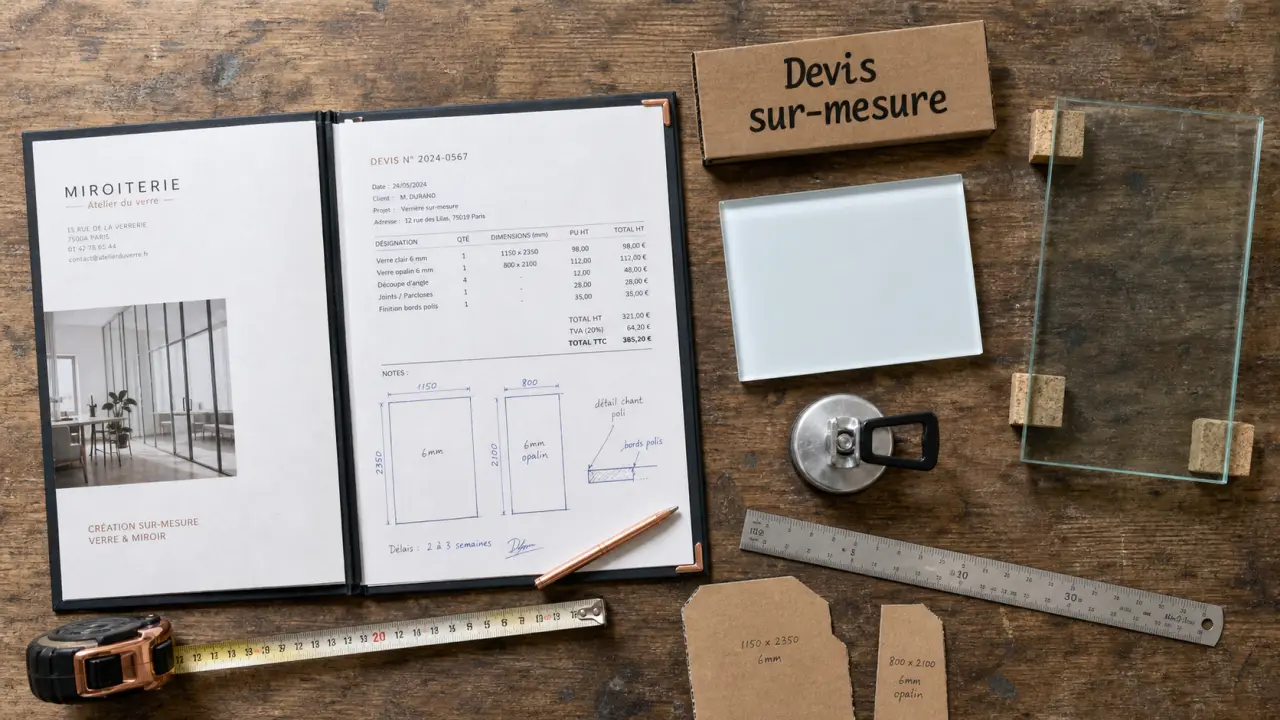 MIROITERIE
Atelier du verre
15 RUE DE LA VERRERIE
75004 PARIS
01 42 78 65 44
contact@atelierduverre.fr
CRÉATION SUR-MESURE
VERRE & MIROIR
DEVIS N° 2024-0567
Date : 24/05/2024
Client : M. DURAND
Projet : Verrière sur-mesure
Adresse : 12 rue des Lilas, 75019 Paris
DÉSIGNATION QTÉ DIMENSIONS (mm) PU HT TOTAL HT
Verre clair 6 mm 1 1150 x 2350 98,00 98,00 €
Verre opalin 6 mm 1 800 x 2100 112,00 112,00 €
Découpe d'angle 4 - 12,00 48,00 €
Joints / Parcloses 1 - 28,00 28,00 €
Finition bords polis 1 - 35,00 35,00 €
TOTAL HT 321,00 €
TVA (20%) 64,20 €
TOTAL TTC 385,20 €
NOTES :
1150
2350
6mm
800
2100
6mm
opalin
détail chant
poli
bords polis
Délais : 2 à 3 semaines
Devis
sur-mesure
1150 x 2350
6mm
800 x 2100
6mm
opalin